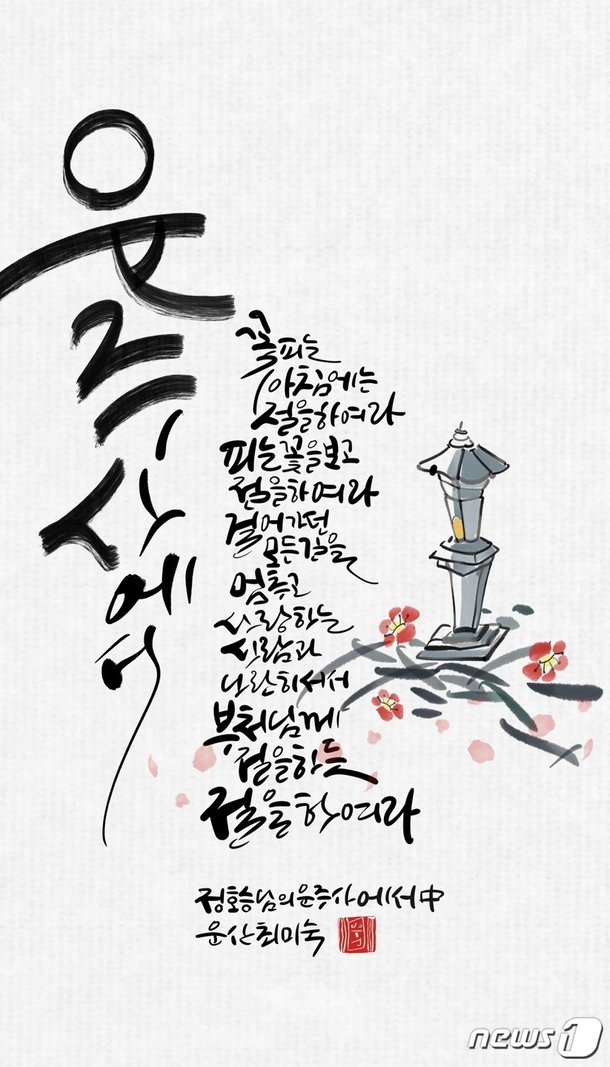 운주사에서
꽃피는
아침에는
절을하여라
피는꽃을보고
절을하여라
걸어가던
모든길을
멈추고
사랑하는
사람과
나란히서서
부처님께
절을하듯
절을하여라
정호승님의 운주사에서 中
운산 최미숙
news1